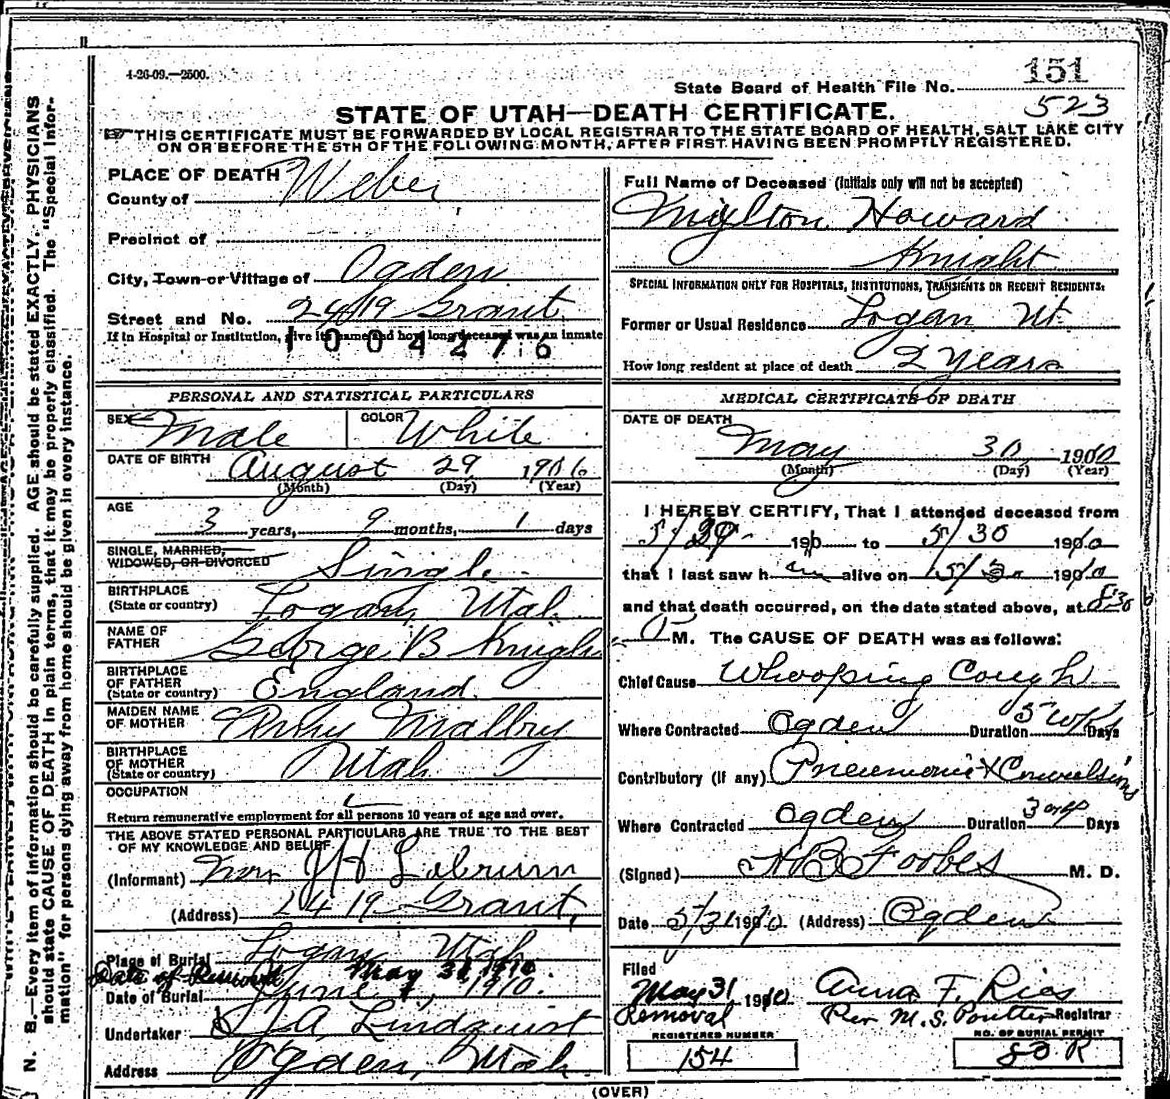 4-26-09.—2500.
State Board of Health File No. 151
523
STATE OF UTAH—DEATH CERTIFICATE.
THIS CERTIFICATE MUST BE FORWARDED BY LOCAL REGISTRAR TO THE STATE BOARD OF HEALTH, SALT LAKE CITY
ON OR BEFORE THE 5TH OF THE FOLLOWING MONTH, AFTER FIRST HAVING BEEN PROMPTLY REGISTERED.
N. B.—Every item of information should be carefully supplied. AGE should be stated EXACTLY. PHYSICIANS
should state CAUSE OF DEATH in plain terms, that it may be properly classified. The "Special Infor-
mation" for persons dying away from home should be given in every instance.
PLACE OF DEATH
County of Weber
Precinct of
City, Town or Village of Ogden
Street and No. 2419 Grant
If in Hospital or Institution, give its name and how long deceased was an inmate
1004276
PERSONAL AND STATISTICAL PARTICULARS
SEX Male COLOR White
DATE OF BIRTH August 29 1906
(Month) (Day) (Year)
AGE
3 years, 9 months, 1 days
SINGLE, MARRIED,
WIDOWED, OR DIVORCED Single
BIRTHPLACE
(State or country) Logan, Utah
NAME OF
FATHER George B Knight
BIRTHPLACE
OF FATHER
(State or country) England
MAIDEN NAME
OF MOTHER Malbry
BIRTHPLACE
OF MOTHER
(State or country) Utah
OCCUPATION
Return remunerative employment for all persons 10 years of age and over.
THE ABOVE STATED PERSONAL PARTICULARS ARE TRUE TO THE BEST
OF MY KNOWLEDGE AND BELIEF.
(Informant) J H
(Address) 2419 Grant,
Place of Burial Logan, Utah
Date of Removal May 31 1910.
Date of Burial June 1, 1910.
Undertaker J A Lindquist
Address Ogden, Utah.
Full Name of Deceased (Initials only will not be accepted)
Howard
Knight
SPECIAL INFORMATION ONLY FOR HOSPITALS, INSTITUTIONS, TRANSIENTS OR RECENT RESIDENTS.
Former or Usual Residence Logan Ut.
How long resident at place of death 2 years
MEDICAL CERTIFICATE OF DEATH
DATE OF DEATH
May 30 1910
(Month) (Day) (Year)
I HEREBY CERTIFY, That I attended deceased from
5/29 190 to 5/30 1910
that I last saw h im alive on 5/30 1910
and that death occurred, on the date stated above, at 8:30
P M. The CAUSE OF DEATH was as follows:
Chief Cause Whooping Cough
Where Contracted Ogden Duration 5 wks Days
Contributory (if any) Pneumonia & Convulsions
Where Contracted Ogden Duration 3 Days
(Signed) Forbes M. D.
Date 5/31 1910 (Address) Ogden
Filed
May 31 1910 Anna F. Rios
Removal Per M. S. Poulter Registrar
REGISTERED NUMBER NO. OF BURIAL PERMIT
154 80 R
(OVER)